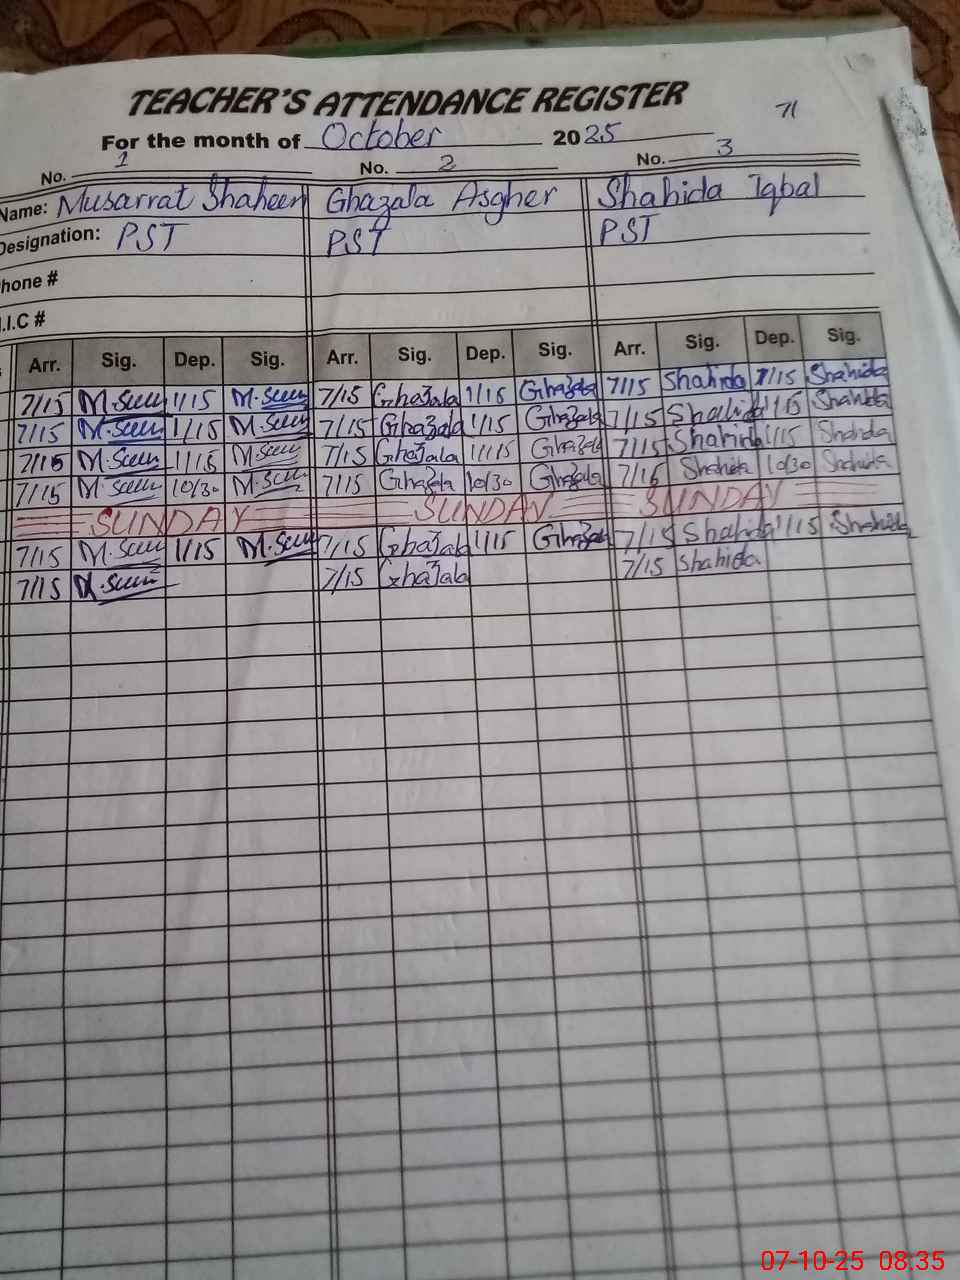 TEACHER'S ATTENDANCE REGISTER
71
For the month of October 2025
No. 1 No. 2 No. 3
Name: Musarrat Shaheen Ghazala Asgher Shahida Iqbal
Designation: PST PST PST
hone #
.I.C #
Arr. Sig. Dep. Sig. Arr. Sig. Dep. Sig. Arr. Sig. Dep. Sig.
7/15 1/15 7/15 Ghazala 1/15 Ghazala 7/15 Shahida 1/15 Shahida
7/15 1/15 7/15 Ghazala 1/15 Ghazala 7/15 Shahida 1/15 Shahida
7/15 1/15 7/15 Ghazala 1/15 Ghazala 7/15 Shahida 1/15 Shahida
7/15 10/30 7/15 Ghazala 10/30 Ghazala 7/15 Shahida 10/30 Shahida
SUNDAY SUNDAY SUNDAY
7/15 1/15 7/15 Ghazala 1/15 Ghazala 7/15 Shahida 1/15 Shahida
7/15 7/15 Ghazala 7/15 Shahida
07-10-25 08:35